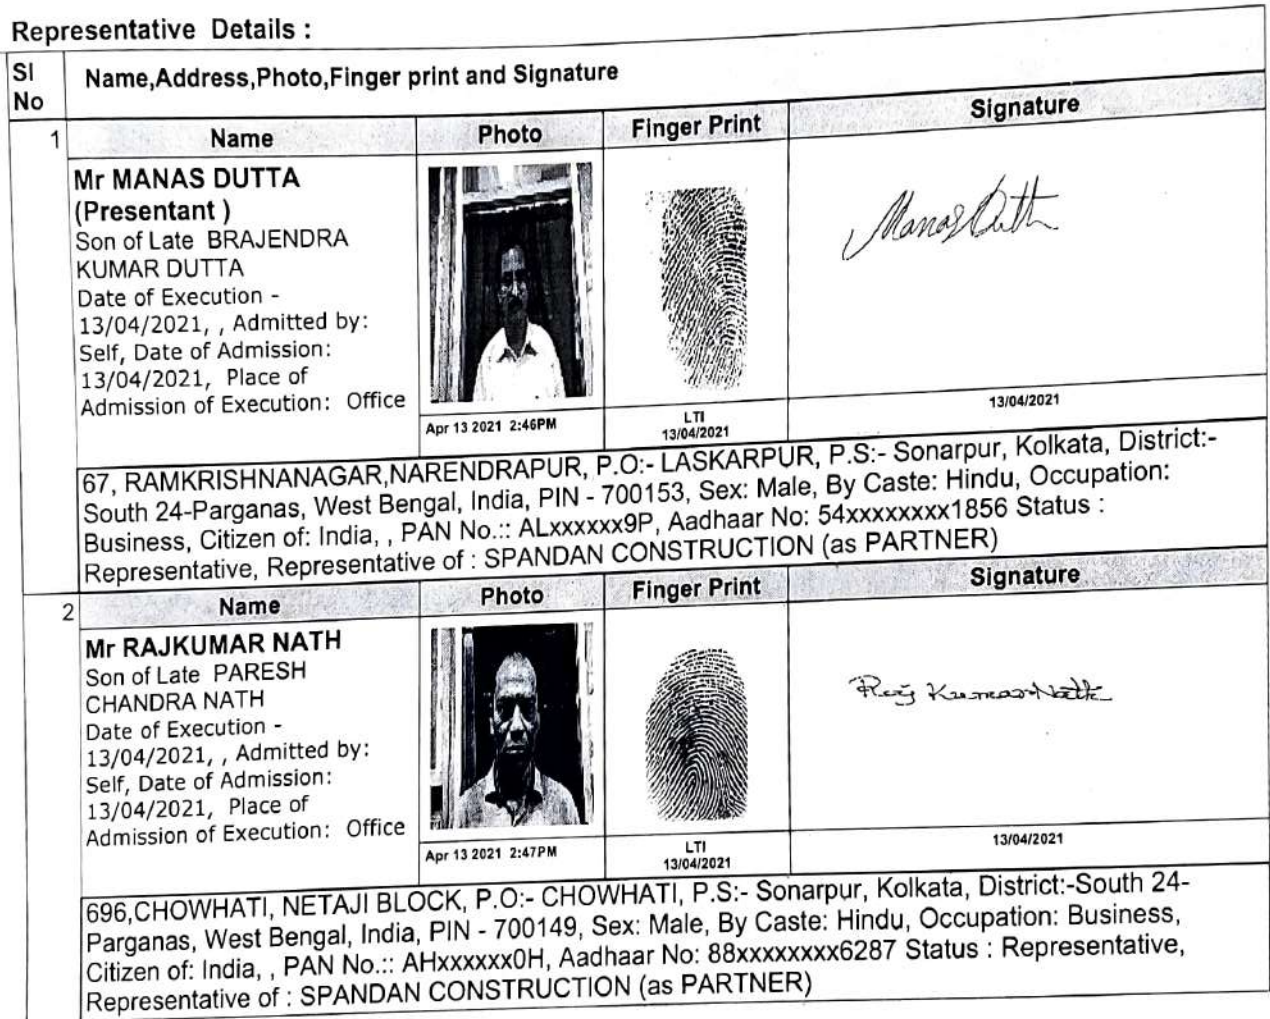 Representative Details :
Sl No
Name,Address,Photo,Finger print and Signature
1
Name
Photo
Finger Print
Signature
Mr MANAS DUTTA
(Presentant )
Son of Late BRAJENDRA
KUMAR DUTTA
Date of Execution -
13/04/2021, , Admitted by:
Self, Date of Admission:
13/04/2021, Place of
Admission of Execution: Office
Manas Dutta
Apr 13 2021 2:46PM
LTI
13/04/2021
13/04/2021
67, RAMKRISHNANAGAR,NARENDRAPUR, P.O:- LASKARPUR, P.S:- Sonarpur, Kolkata, District:-
South 24-Parganas, West Bengal, India, PIN - 700153, Sex: Male, By Caste: Hindu, Occupation:
Business, Citizen of: India, , PAN No.:: ALxxxxxx9P, Aadhaar No: 54xxxxxxxx1856 Status :
Representative, Representative of : SPANDAN CONSTRUCTION (as PARTNER)
2
Name
Photo
Finger Print
Signature
Mr RAJKUMAR NATH
Son of Late PARESH
CHANDRA NATH
Date of Execution -
13/04/2021, , Admitted by:
Self, Date of Admission:
13/04/2021, Place of
Admission of Execution: Office
Raj Kumar Nath
Apr 13 2021 2:47PM
LTI
13/04/2021
13/04/2021
696,CHOWHATI, NETAJI BLOCK, P.O:- CHOWHATI, P.S:- Sonarpur, Kolkata, District:-South 24-
Parganas, West Bengal, India, PIN - 700149, Sex: Male, By Caste: Hindu, Occupation: Business,
Citizen of: India, , PAN No.:: AHxxxxxx0H, Aadhaar No: 88xxxxxxxx6287 Status : Representative,
Representative of : SPANDAN CONSTRUCTION (as PARTNER)